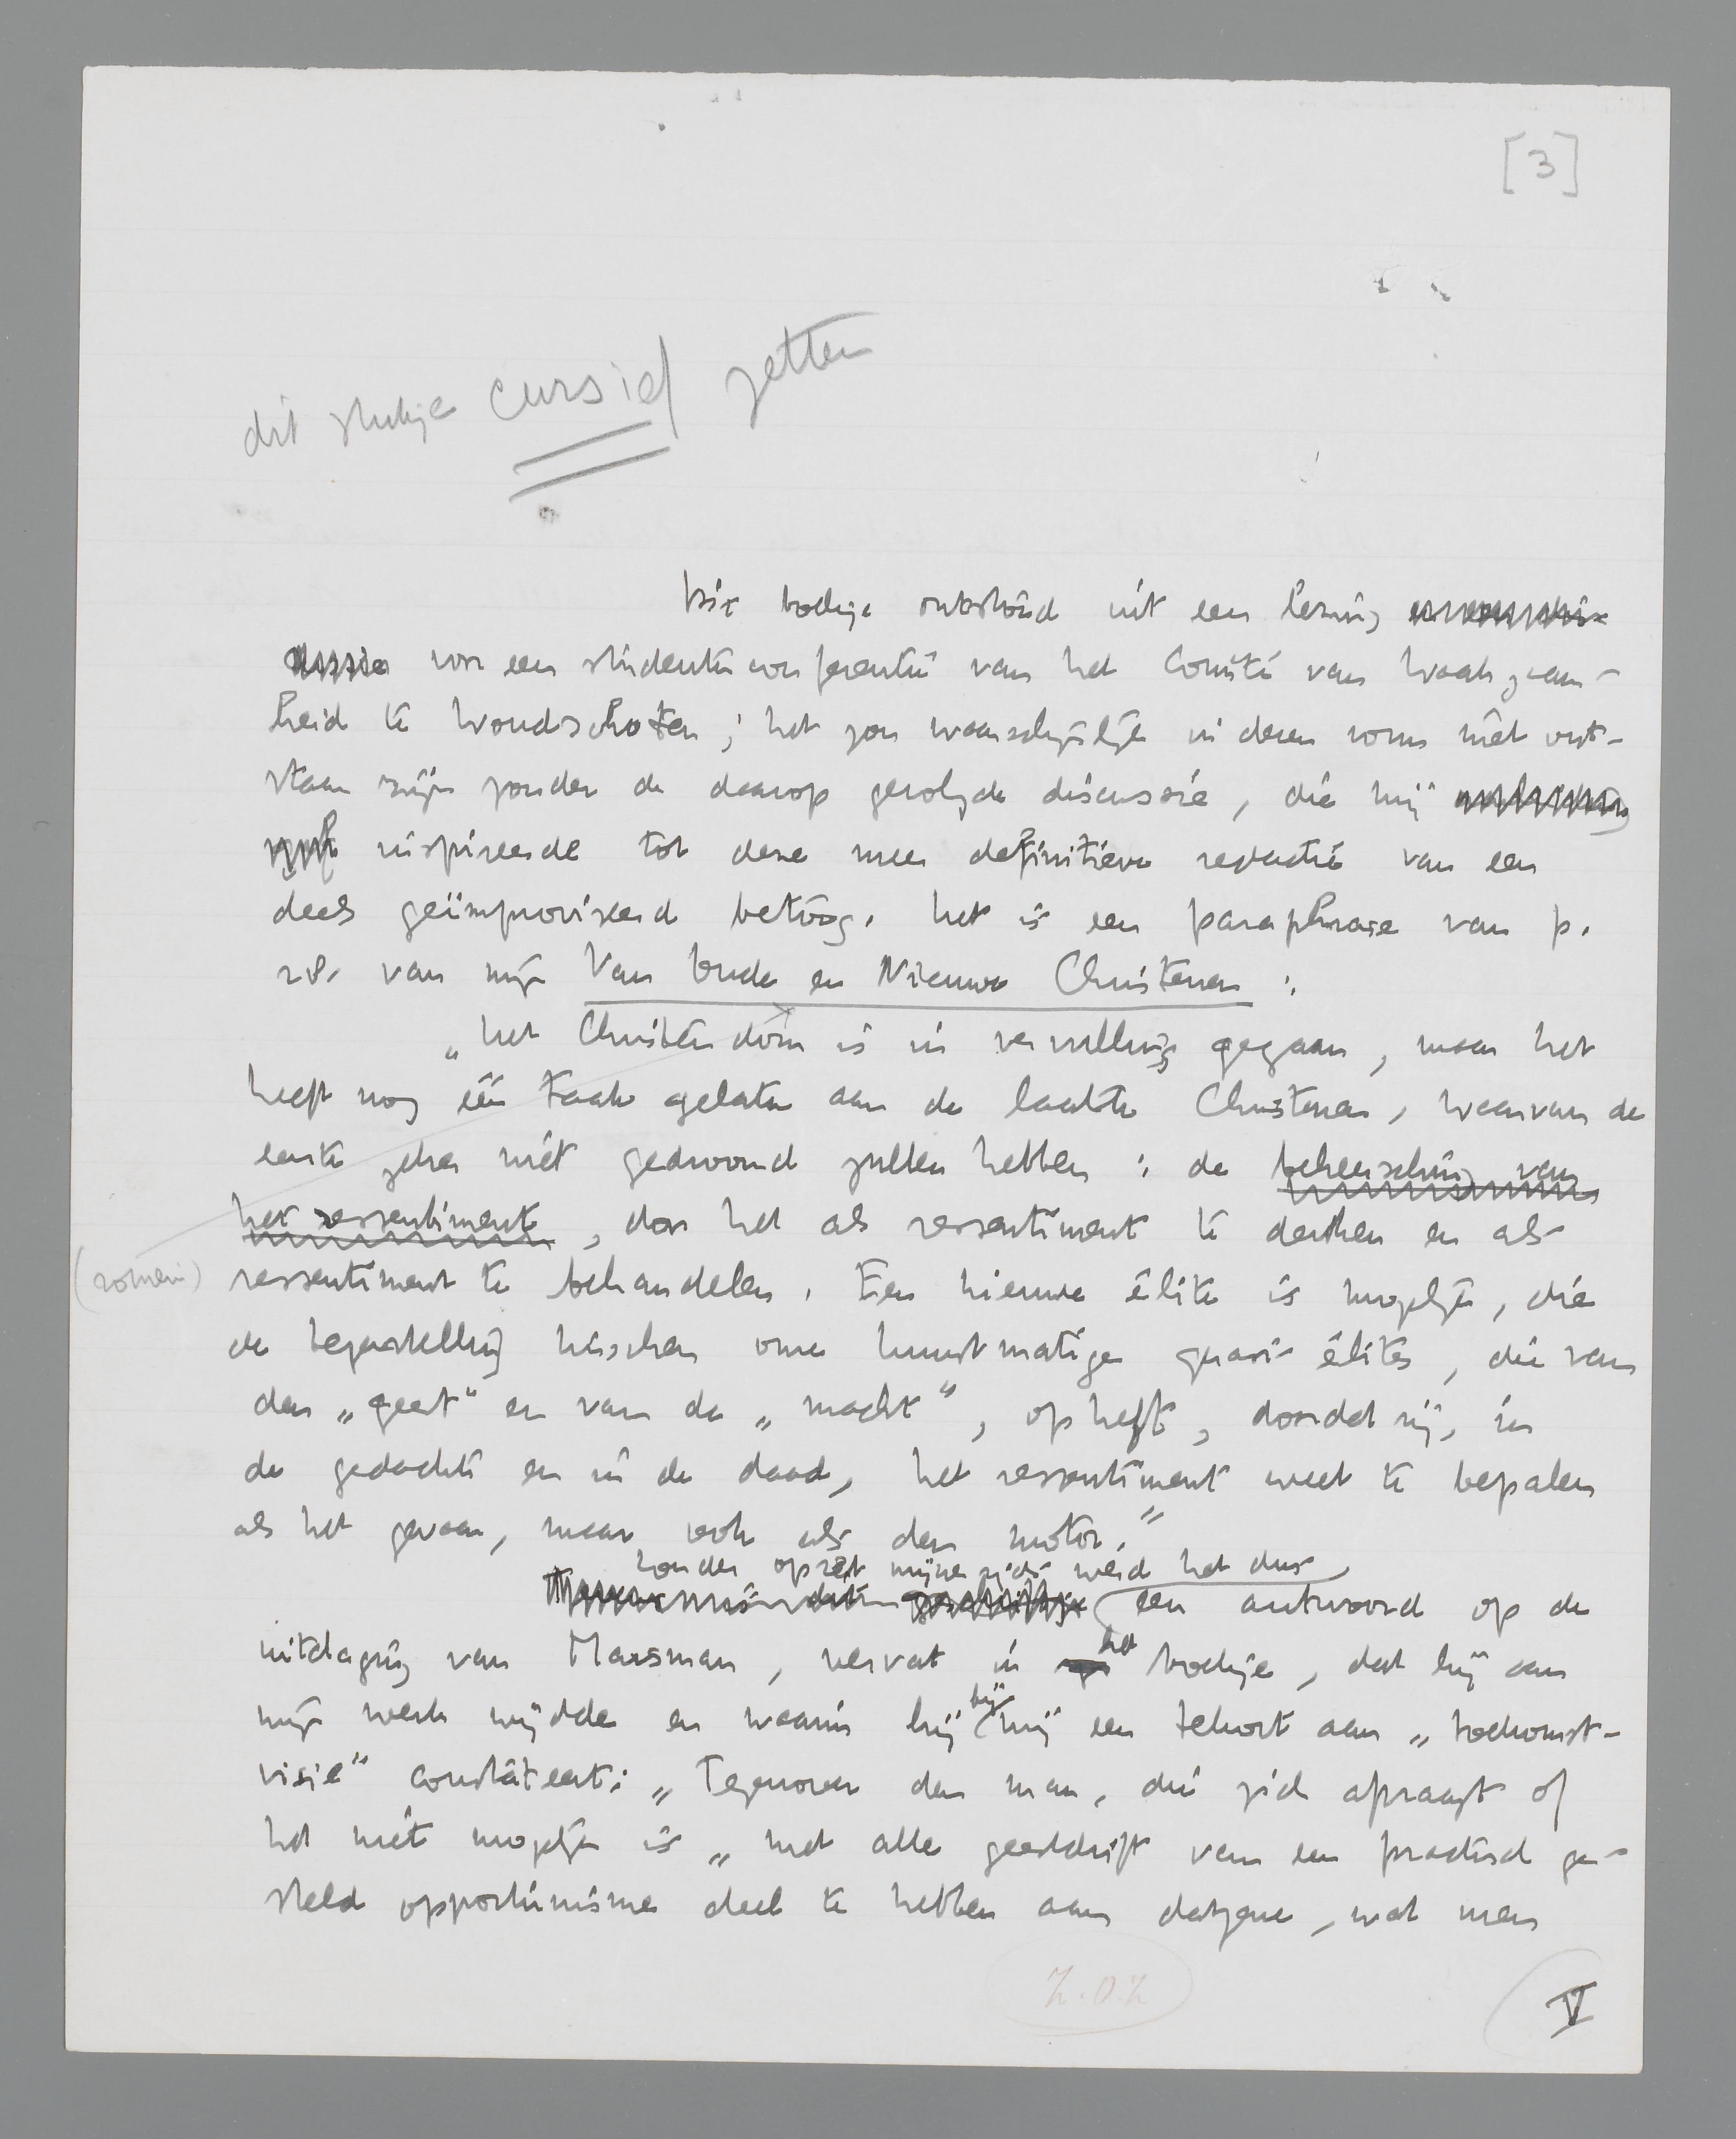 [3]
dit stukje cursief zetten
Dit boekje ontstond uit een lezing
voor een studentenconferentie van het Comité van Waakzaam-
heid te Woudschoten; het zou waarschijnlijk in dezen vorm niet ont-
staan zijn zonder de daarop gevolgde discussie, die mij
inspireerde tot deze meer definitieve redactie van een
deels geïmproviseerd betoog. Het is een paraphrase van p.
van mijn Van Oude en Nieuwe Christenen:
„Het Christendom is in vervulling gegaan, maar het
heeft nog één taak gelaten aan de laatste Christenen, waarvan de
eerste zeker niet gedroomd zullen hebben: de beheersching van
het ressentiment, door het als ressentiment te denken en als
(romein) ressentiment te behandelen. Een nieuwe élite is mogelijk, die
de tegenstelling tusschen onze kunstmatige quasi-élites, die van
den „geest” en van de „macht”, opheft, doordat zij, in
de gedachte en in de daad, het ressentiment weet te bepalen
als het gevaar, maar ook als den motor.”
Zonder opzet mijnerzijds werd het dus
een antwoord op de
uitdaging van Marsman, vervat in het boekje, dat hij aan
mijn werk wijdde en waarin hij bij mij een tekort aan „toekomst-
visie” constateert: „Tegenover den man, die zich afvraagt of
het niet mogelijk is „met alle geestdrift van een practisch ge-
steld opportunisme deel te hebben aan datgene, wat men
Z.O.Z
V